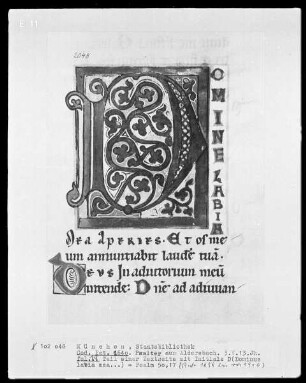 2640
DOMINE LABIA
Mea Aperies. Et os me
um annuntiabit laude tuā.
Deus In adiutorium meū
intende: Dn̄e ad adiuuan
102 640 München, Staatsbibliothek
Cod. lat. 2640. Psalter aus Aldersbach.
Teil einer Textseite mit Initiale D(Domine
labia mea...) = Psalm 50,17